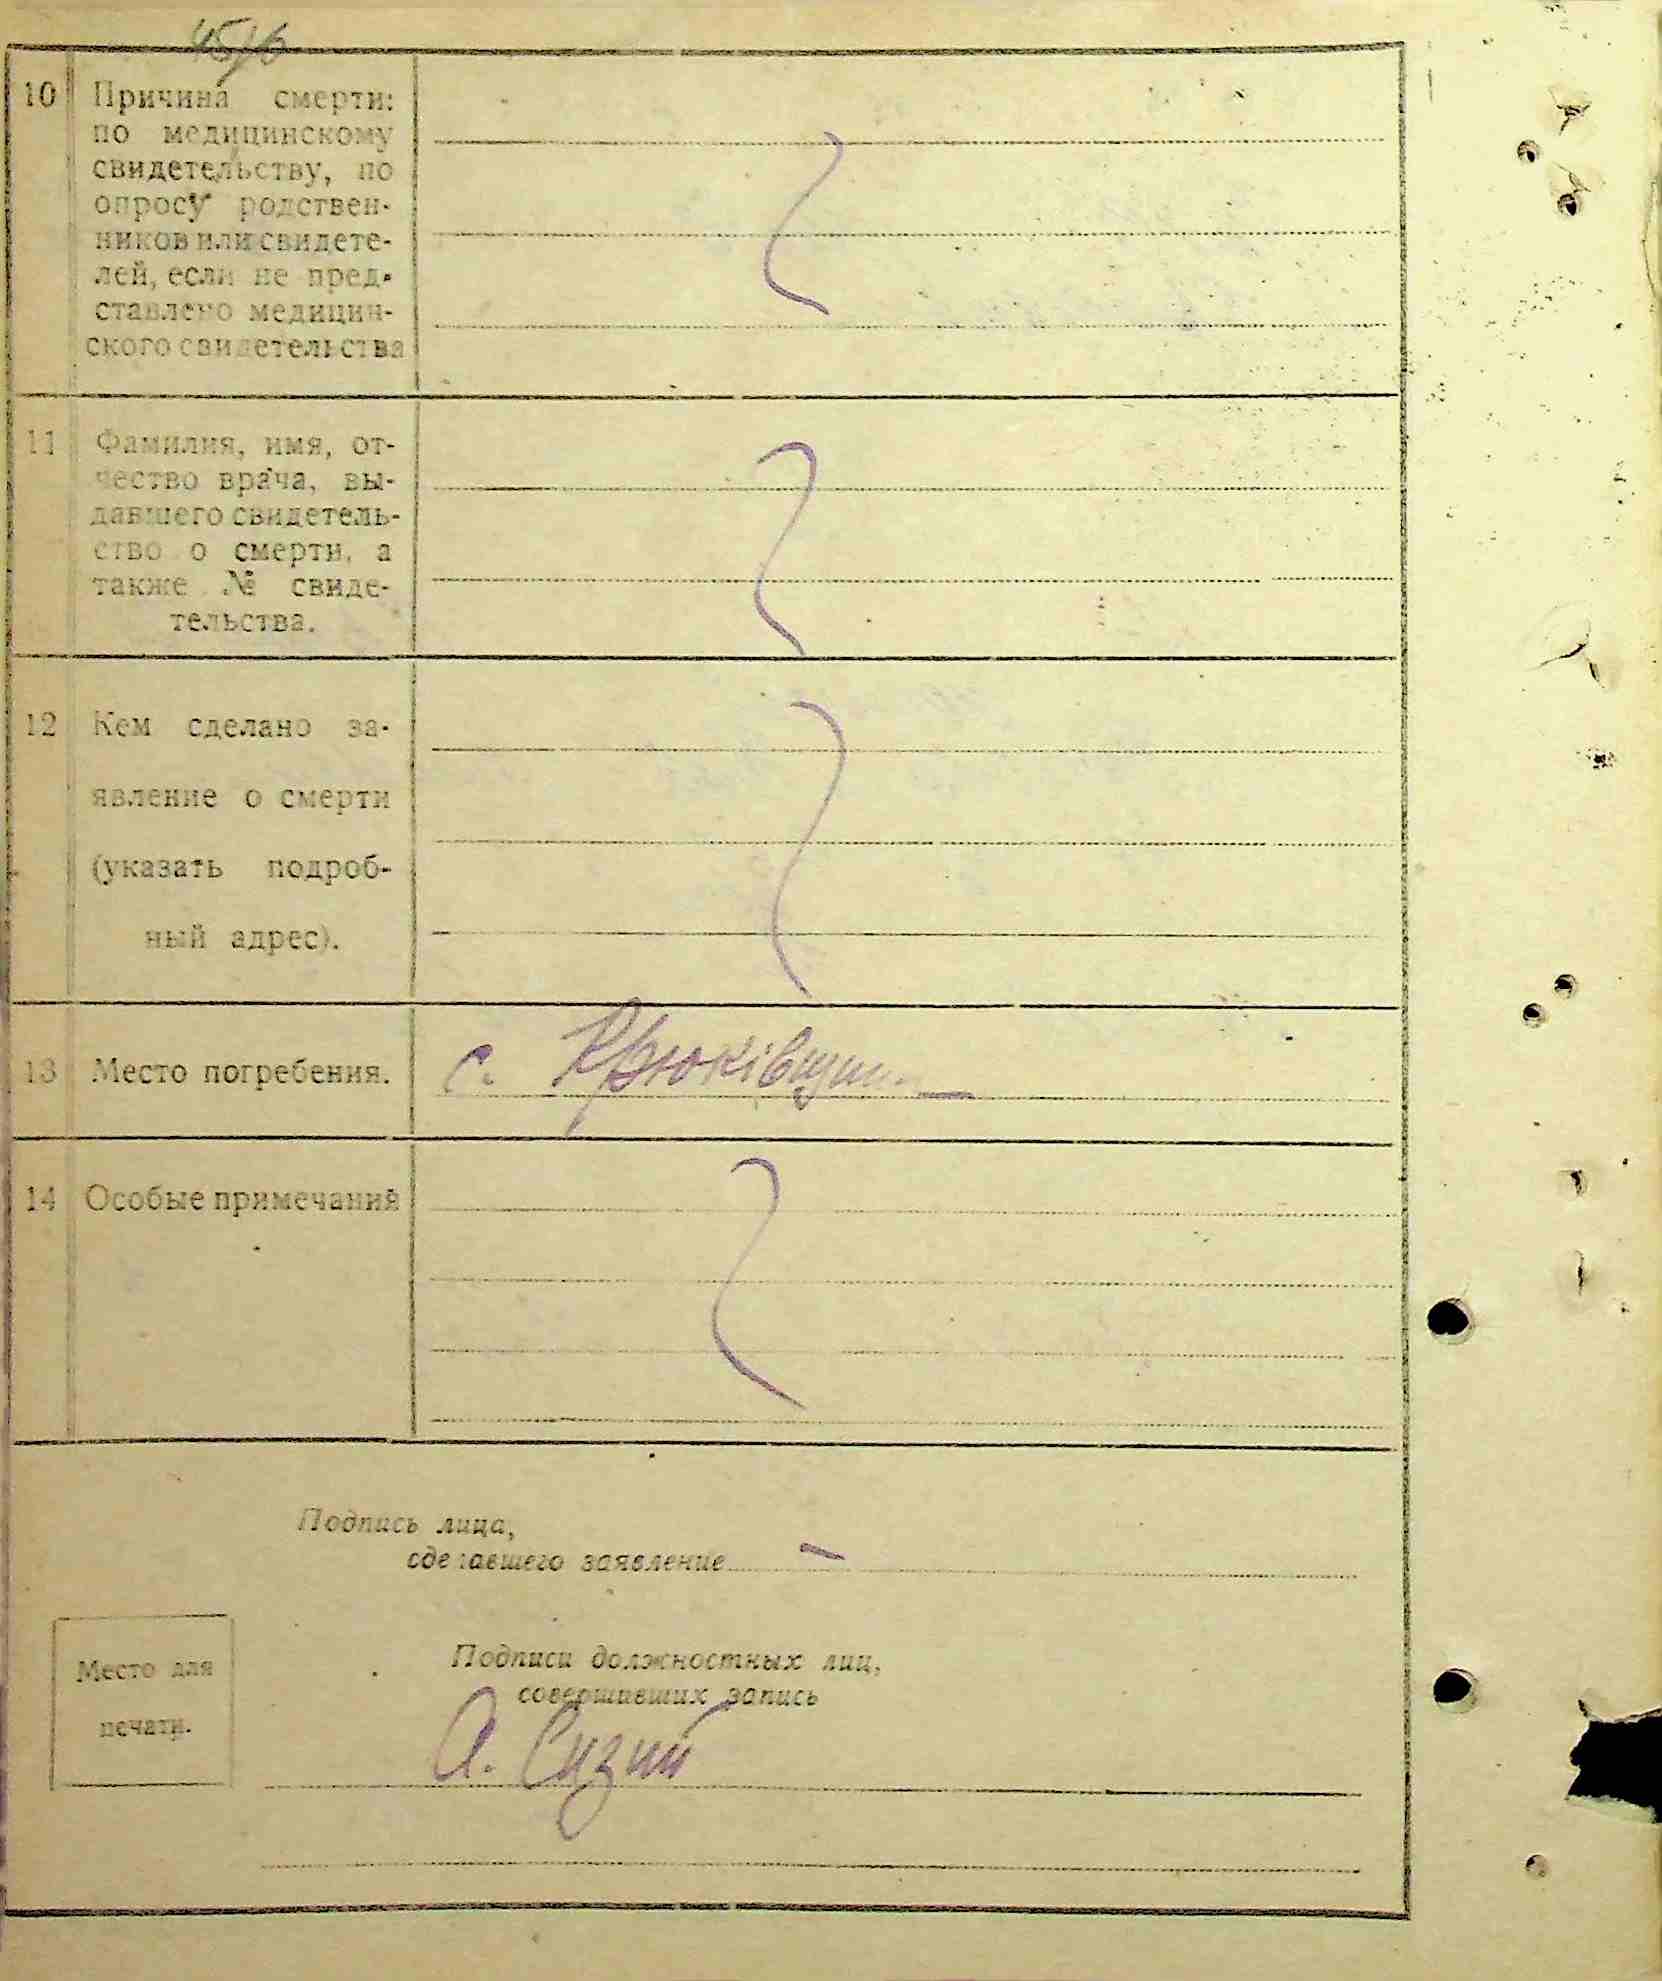 10 Причина смерти:
по медицинскому
свидетельству, по
опросу родствен-
ников или свидете-
лей, если не пред-
ставлено медицин-
ского свидетельства
11 Фамилия, имя, от-
чество врача, вы-
давшего свидетель-
ство о смерти, а
также № свиде-
тельства.
12 Кем сделано за-
явление о смерти
(указать подроб-
ный адрес).
13 Место погребения. с. Крюківщина
14 Особые примечания
Подпись лица,
сделавшего заявление —
Подписи должностных лиц,
совершивших запись
Место для
печати.
А. Сизий